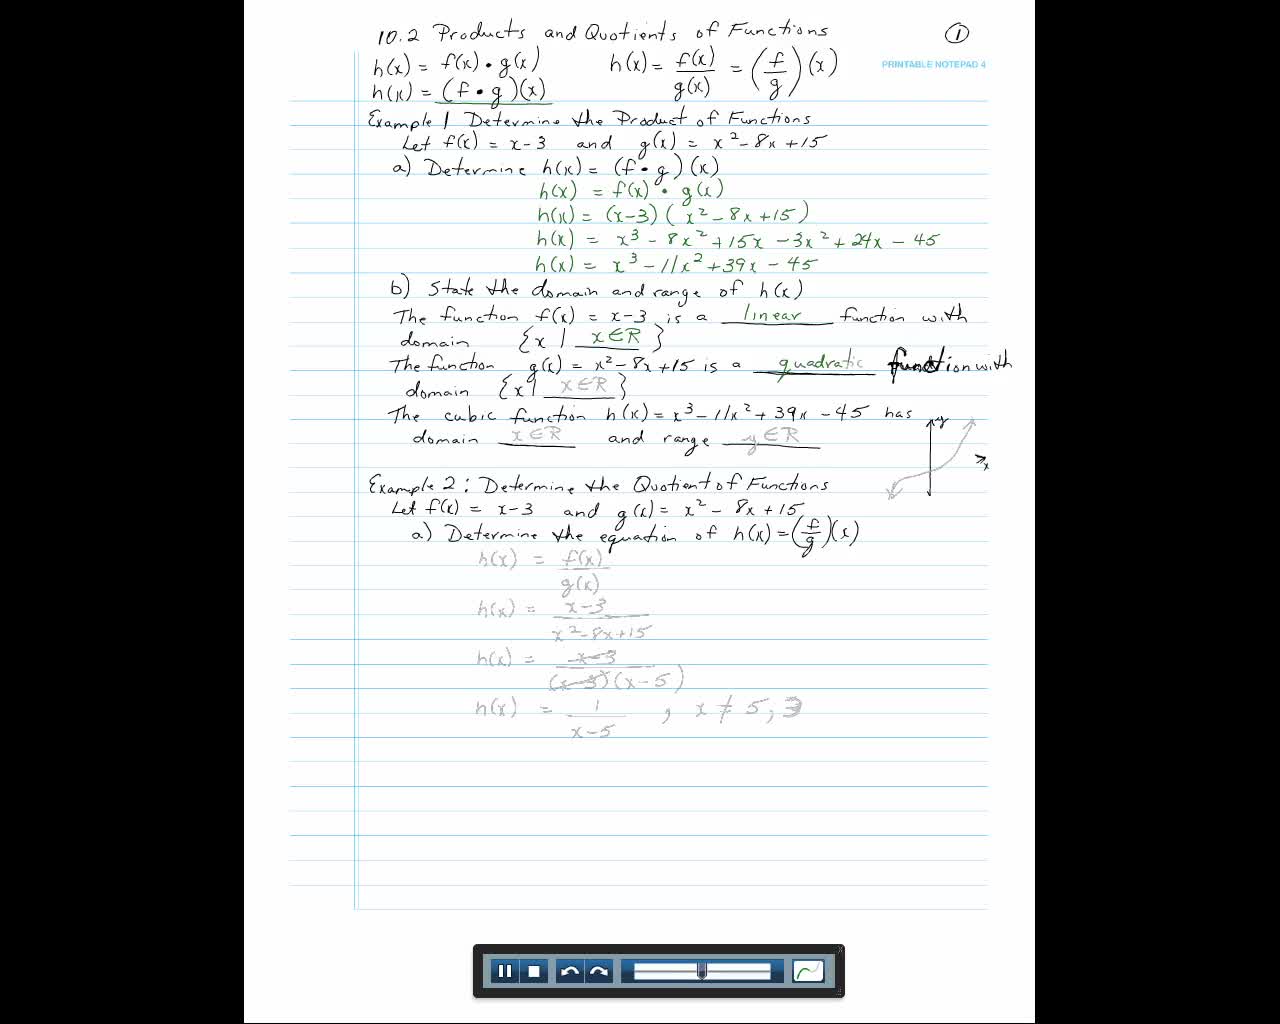 10.2 Products and Quotients of Functions ①
h(x) = f(x) • g(x) h(x) = f(x)/g(x) = (f/g)(x)
PRINTABLE NOTEPAD 4
h(x) = (f • g)(x)
Example 1 Determine the Product of Functions
Let f(x) = x-3 and g(x) = x² - 8x + 15
a) Determine h(x) = (f • g)(x)
h(x) = f(x) • g(x)
h(x) = (x-3)(x² - 8x + 15)
h(x) = x³ - 8x² + 15x - 3x² + 24x - 45
h(x) = x³ - 11x² + 39x - 45
b) State the domain and range of h(x)
The function f(x) = x-3 is a linear function with
domain {x | x∈R}
The function g(x) = x² - 8x + 15 is a quadratic function with
domain {x | x∈R}
The cubic function h(x) = x³ - 11x² + 39x - 45 has
domain x∈R and range y∈R
y
x
Example 2: Determine the Quotient of Functions
Let f(x) = x-3 and g(x) = x² - 8x + 15
a) Determine the equation of h(x) = (f/g)(x)
h(x) = f(x)/g(x)
h(x) = x-3/x²-8x+15
h(x) = x-3/(x-3)(x-5)
h(x) = 1/x-5 , x ≠ 5, 3